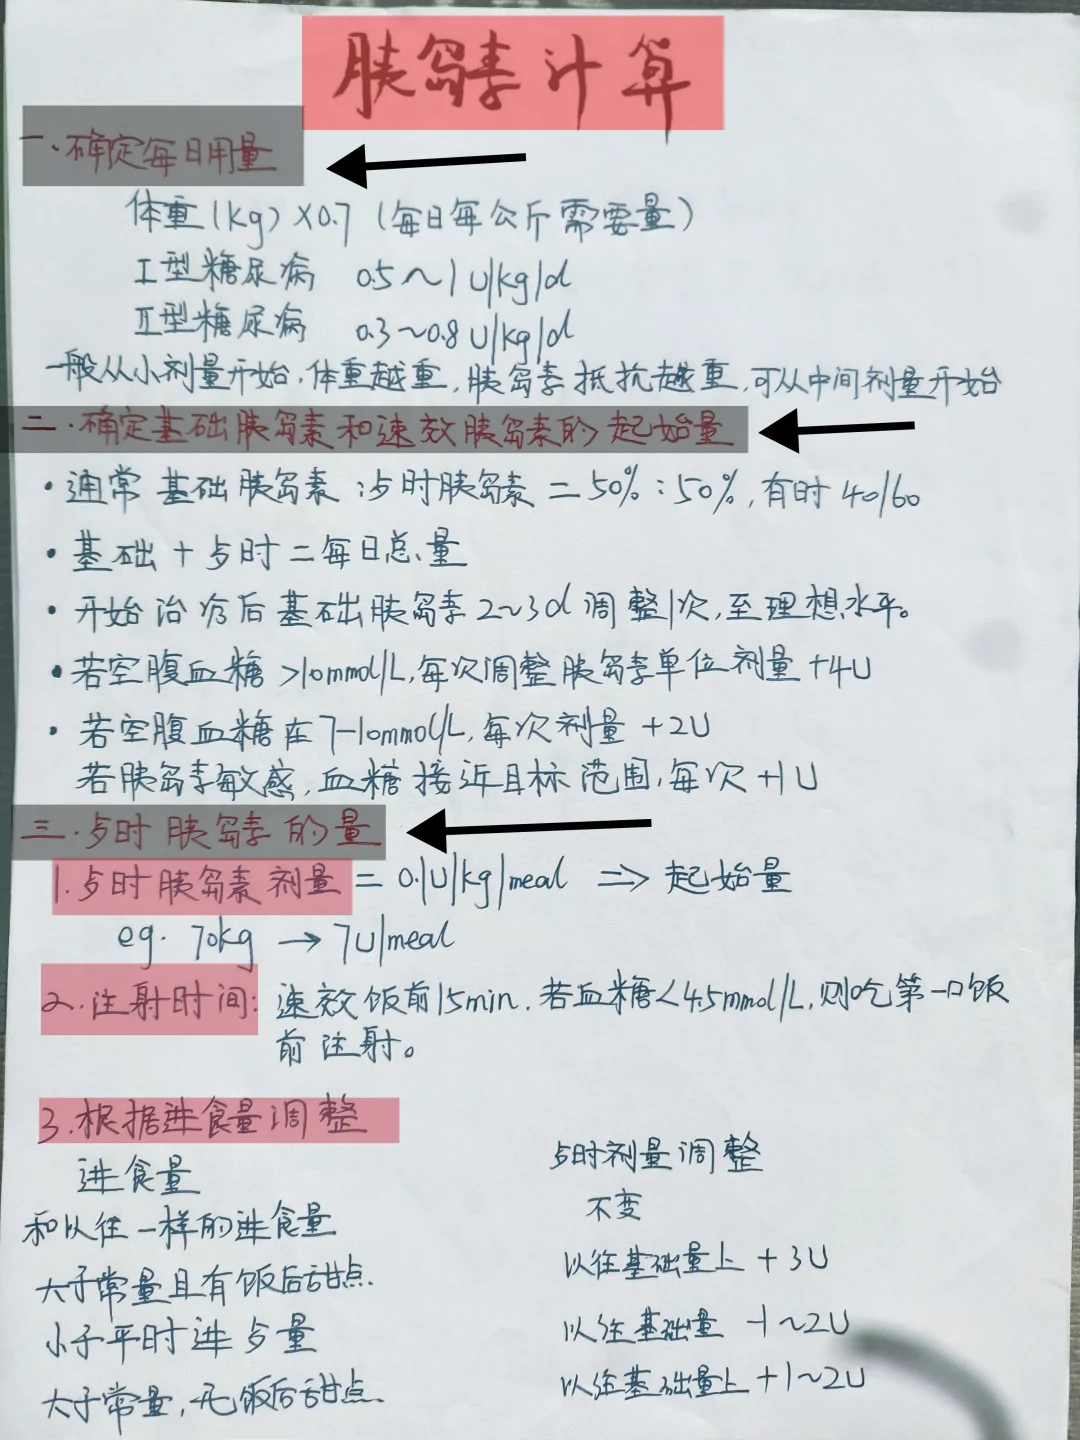 胰岛素计算
一.确定每日用量
体重(kg)×0.7 (每日每公斤需要量)
I型糖尿病 0.5~1U/kg/d
II型糖尿病 0.3~0.8U/kg/d
一般从小剂量开始.体重越重,胰岛素抵抗越重,可从中间剂量开始
二.确定基础胰岛素和速效胰岛素的起始量
• 通常基础胰岛素:歺时胰岛素=50%:50%,有时40/60
• 基础+歺时=每日总量
• 开始治疗后基础胰岛素2~3d调整1次,至理想水平。
• 若空腹血糖>10mmol/L,每次调整胰岛素单位剂量+4U
• 若空腹血糖在7-10mmol/L,每次剂量+2U
若胰岛素敏感,血糖接近目标范围,每次+1U
三.歺时胰岛素的量
1.歺时胰岛素剂量=0.1U/kg/meal ⇒ 起始量
eg. 70kg → 7U/meal
2.注射时间: 速效饭前15min.若血糖<4.5mmol/L,则吃第一口饭
前注射。
3.根据进食量调整
进食量 歺时剂量调整
和以往一样的进食量 不变
大于常量且有饭后甜点. 以往基础量上+3U
小于平时进歺量 以往基础量-1~2U
大于常量,无饭后甜点. 以往基础量上+1~2U